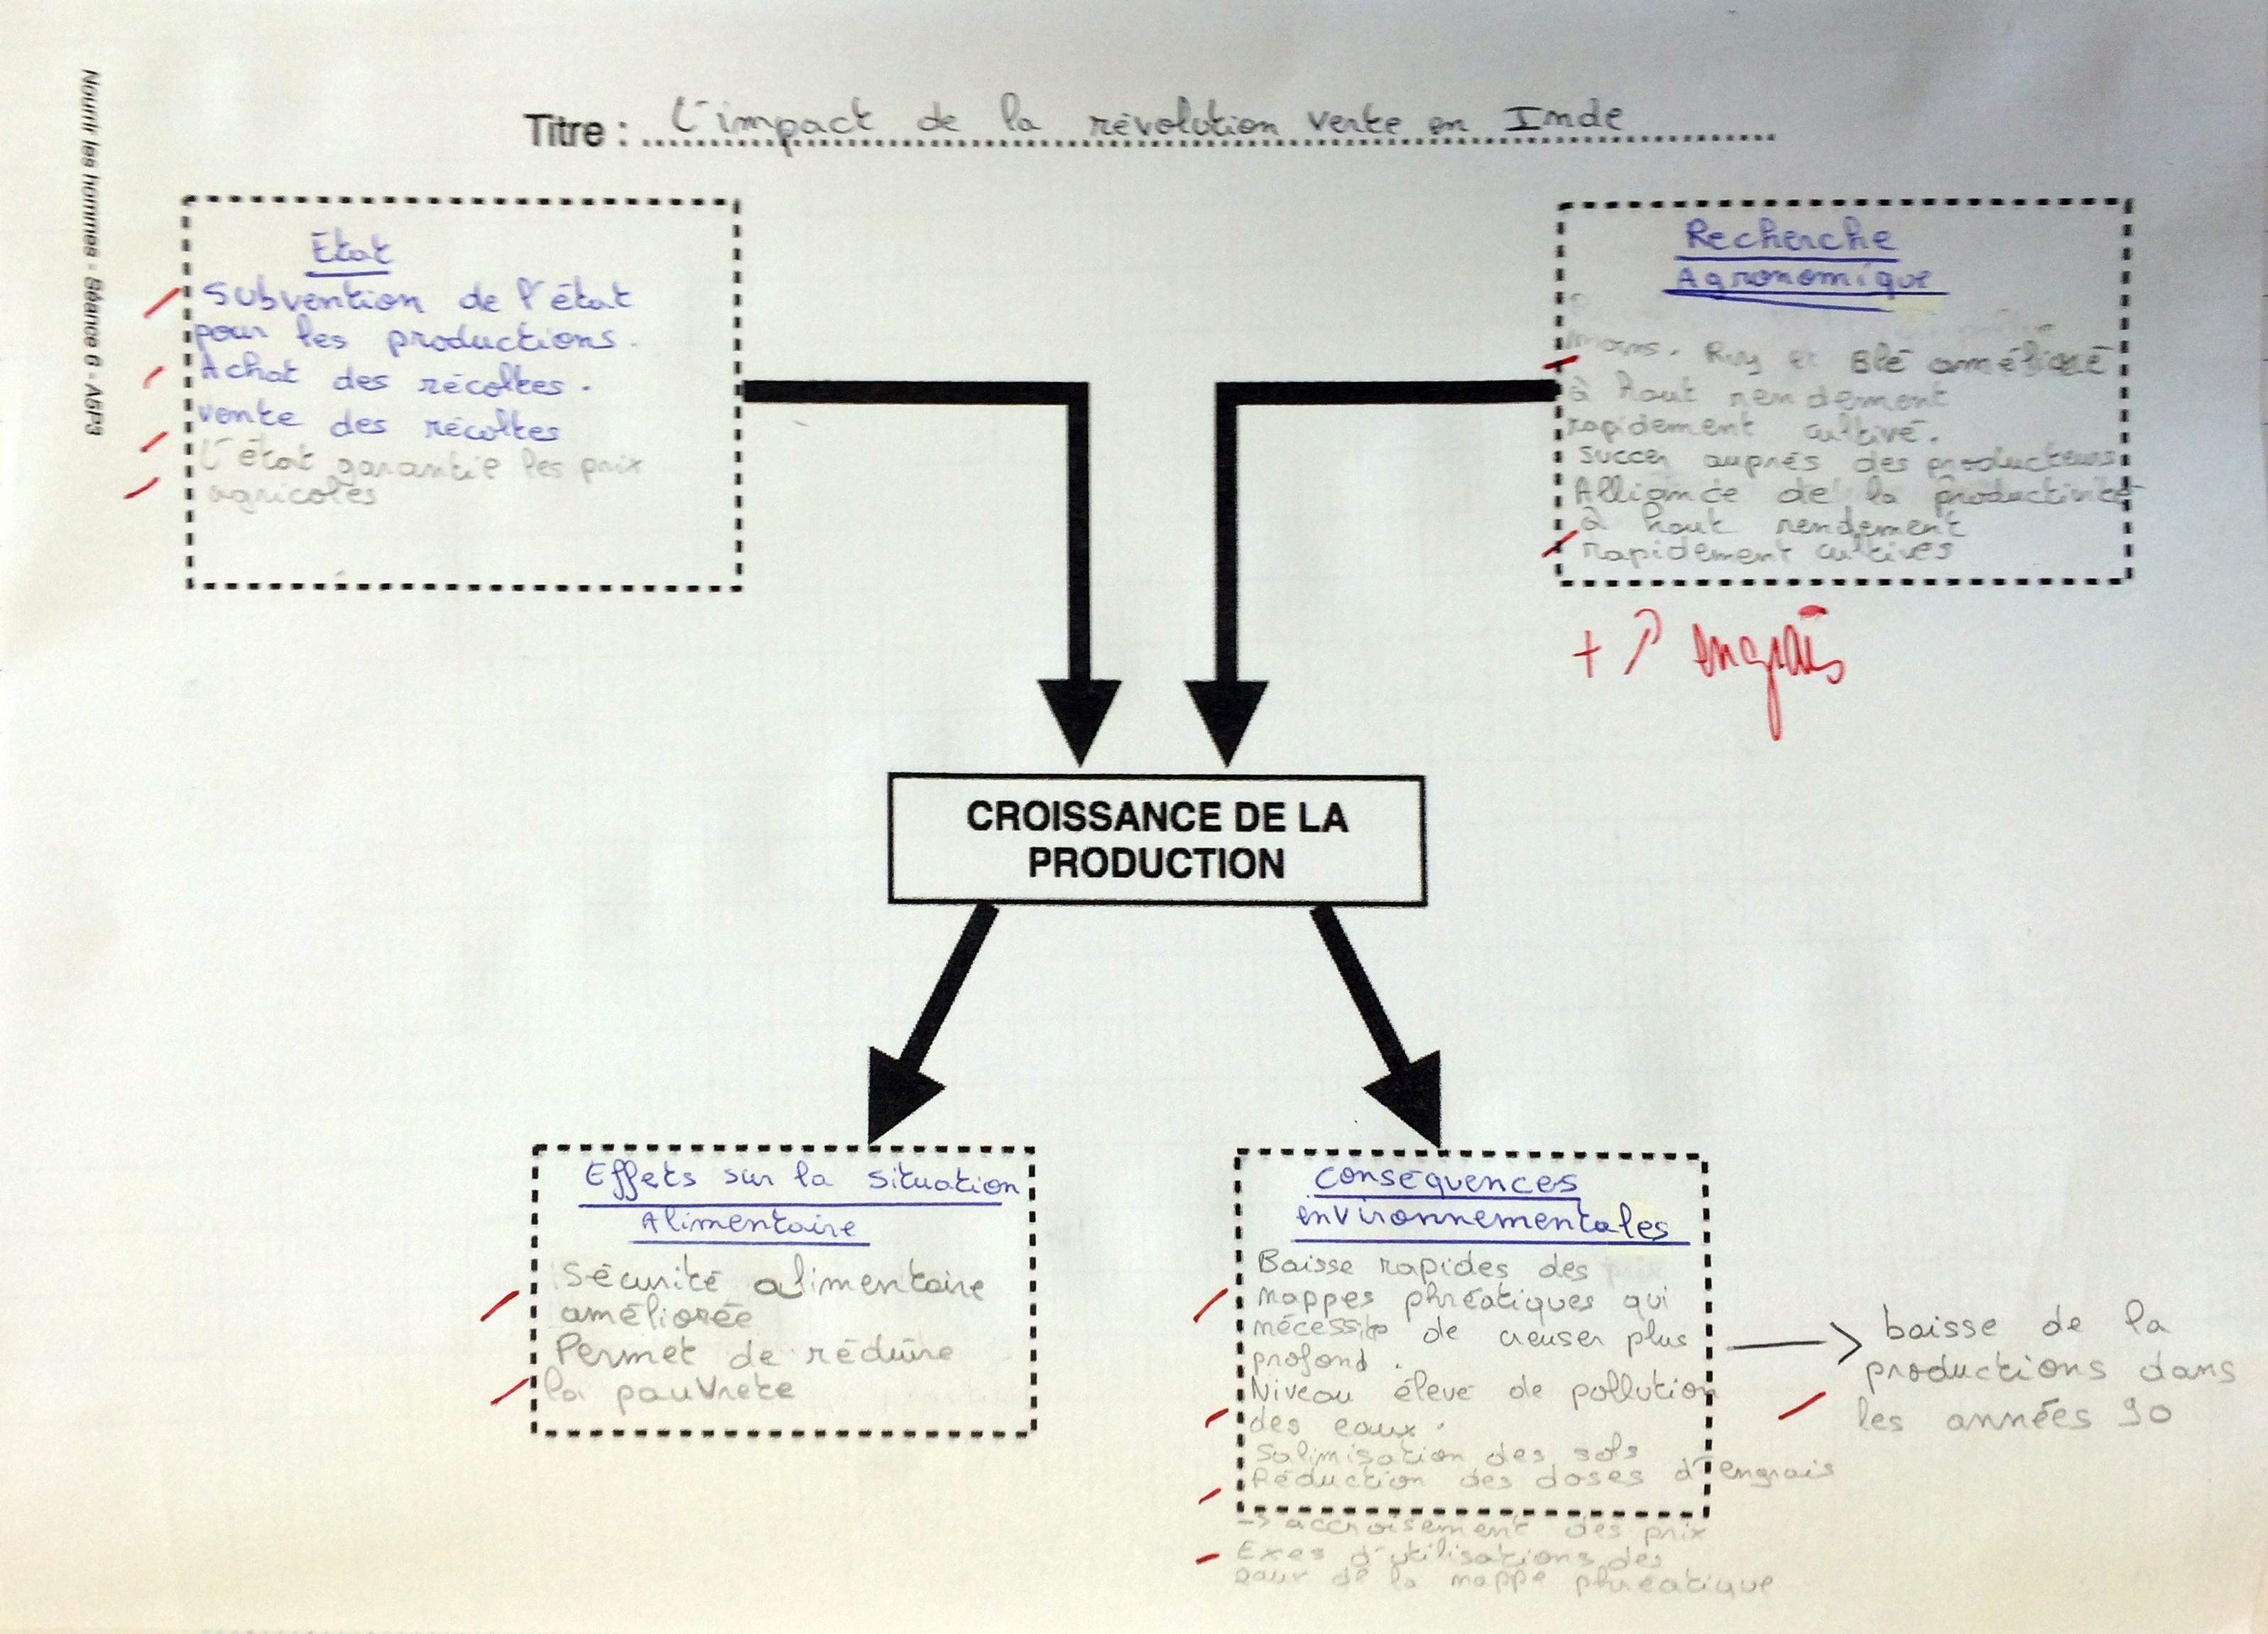 Nourrir les hommes - Séance 6 - A5P3
Titre : L'impact de la révolution verte en Inde
État
Subvention de l'état
pour les productions.
Achat des récoltes.
vente des récoltes
L'état garantie les prix
agricoles
Recherche
Agronomique
Blé amélioré
à haut rendement
rapidement cultivé.
Succes auprès des producteurs
Alliance de la productivité
à haut rendement
rapidement cultives
+ ↗ engrais
CROISSANCE DE LA
PRODUCTION
Effets sur la situation
Alimentaire
Sécurité alimentaire
améliorée
Permet de réduire
la pauvreté
Conséquences
environnementales
Baisse rapides des
nappes phréatiques qui
nécessite de creuser plus
profond.
Niveau élevé de pollution
des eaux.
Salinisation des sols
Réduction des doses d'engrais
-> accroisement des prix
Exes d'utilisations des
eaux de la nappe phréatique
baisse de la
productions dans
les années 90